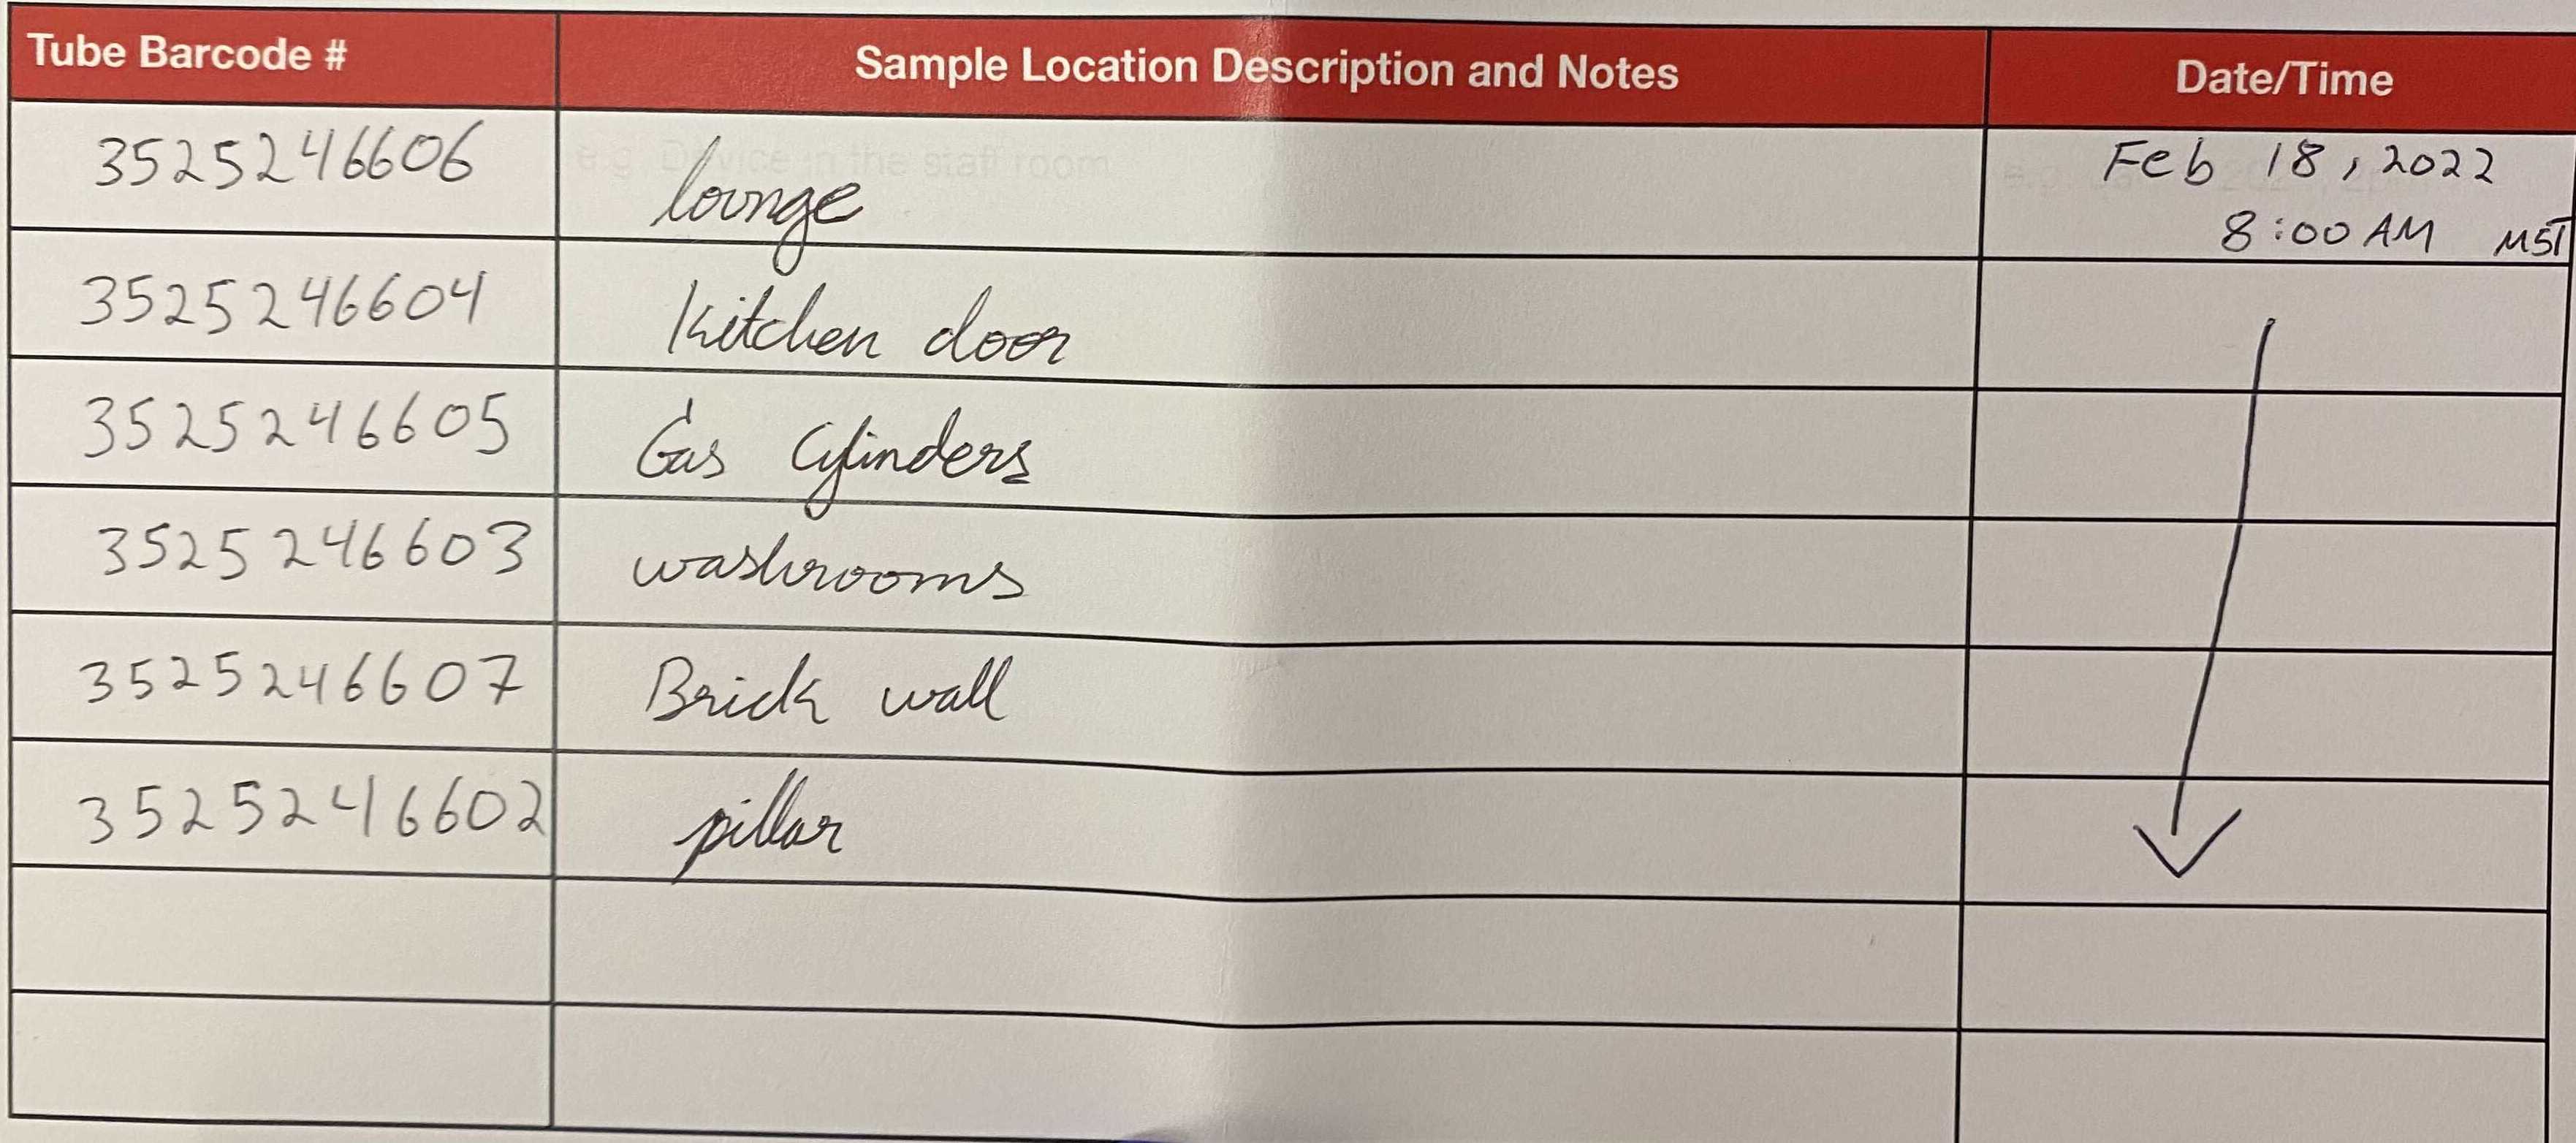 Tube Barcode # Sample Location Description and Notes Date/Time
3525246606 e.g. Device in the staff room lounge Feb 18, 2022
8:00 AM MST
3525246604 Kitchen door
3525246605 Gas Cylinders
3525246603 washrooms
3525246607 Brick wall
3525246602 pillar